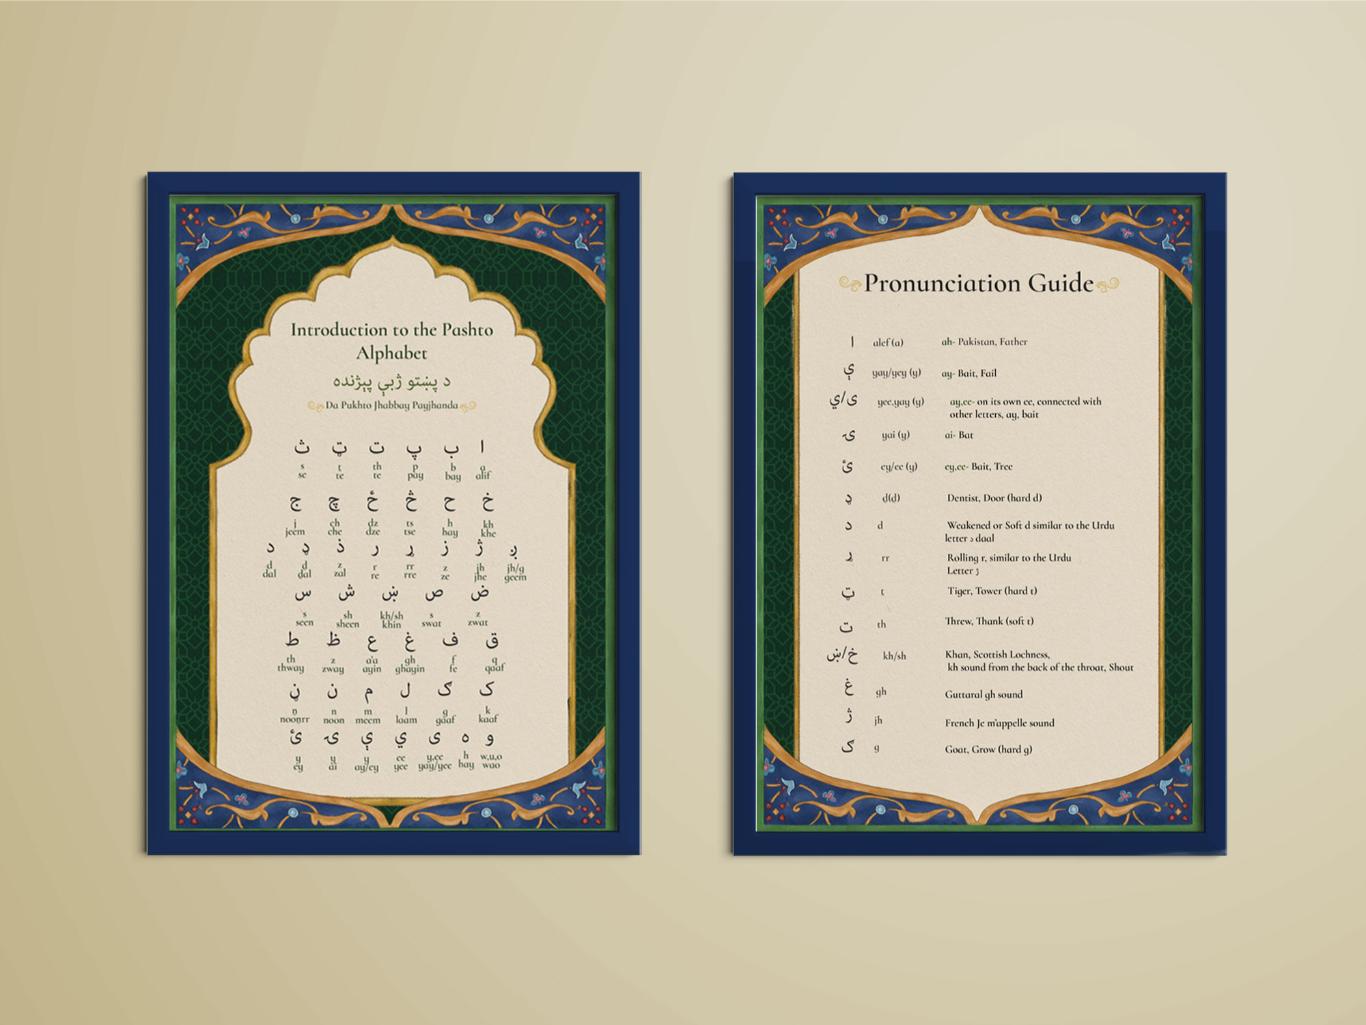 Introduction to the Pashto
Alphabet
د پښتو ژبې پېژنده
Da Pukhto Jhabbay Payjhanda
ا ب پ ت ټ ث
s t th p b a
se te te pay bay alif
خ ح څ ځ چ ج
j ch dz ts h kh
jeem che dze tse hay khe
ږ ژ ز ړ ر ذ ډ د
d d z r rr z jh jh/g
dal dal zal re rre ze jhe geem
ض ص ښ ش س
s sh kh/sh s z
seen sheen khin swat zwat
ق ف غ ع ظ ط
th z a'a gh f q
thway zway ayin ghayin fe qaaf
ک ګ ل م ن ڼ
n n m l g k
noonrr noon meem laam gaaf kaaf
و ه ی ي ې ۍ ئ
y y y ee y,ee h w,u,o
ey ai ay/ey yee yay/yee hay wao
Pronunciation Guide
ا alef (a) ah- Pakistan, Father
ې yay/yey (y) ay- Bait, Fail
ی/ي yee,yay (y) ay,ee- on its own ee, connected with
other letters, ay, bait
ۍ yai (y) ai- Bat
ئ ey/ee (y) ey,ee- Bait, Tree
ډ d(d) Dentist, Door (hard d)
د d Weakened or Soft d similar to the Urdu
letter د daal
ړ rr Rolling r, similar to the Urdu
Letter
ټ t Tiger, Tower (hard t)
ت th Threw, Thank (soft t)
خ/ښ kh/sh Khan, Scottish Lochness,
kh sound from the back of the throat, Shout
غ gh Guttaral gh sound
ژ jh French Je m'appelle sound
ګ g Goat, Grow (hard g)